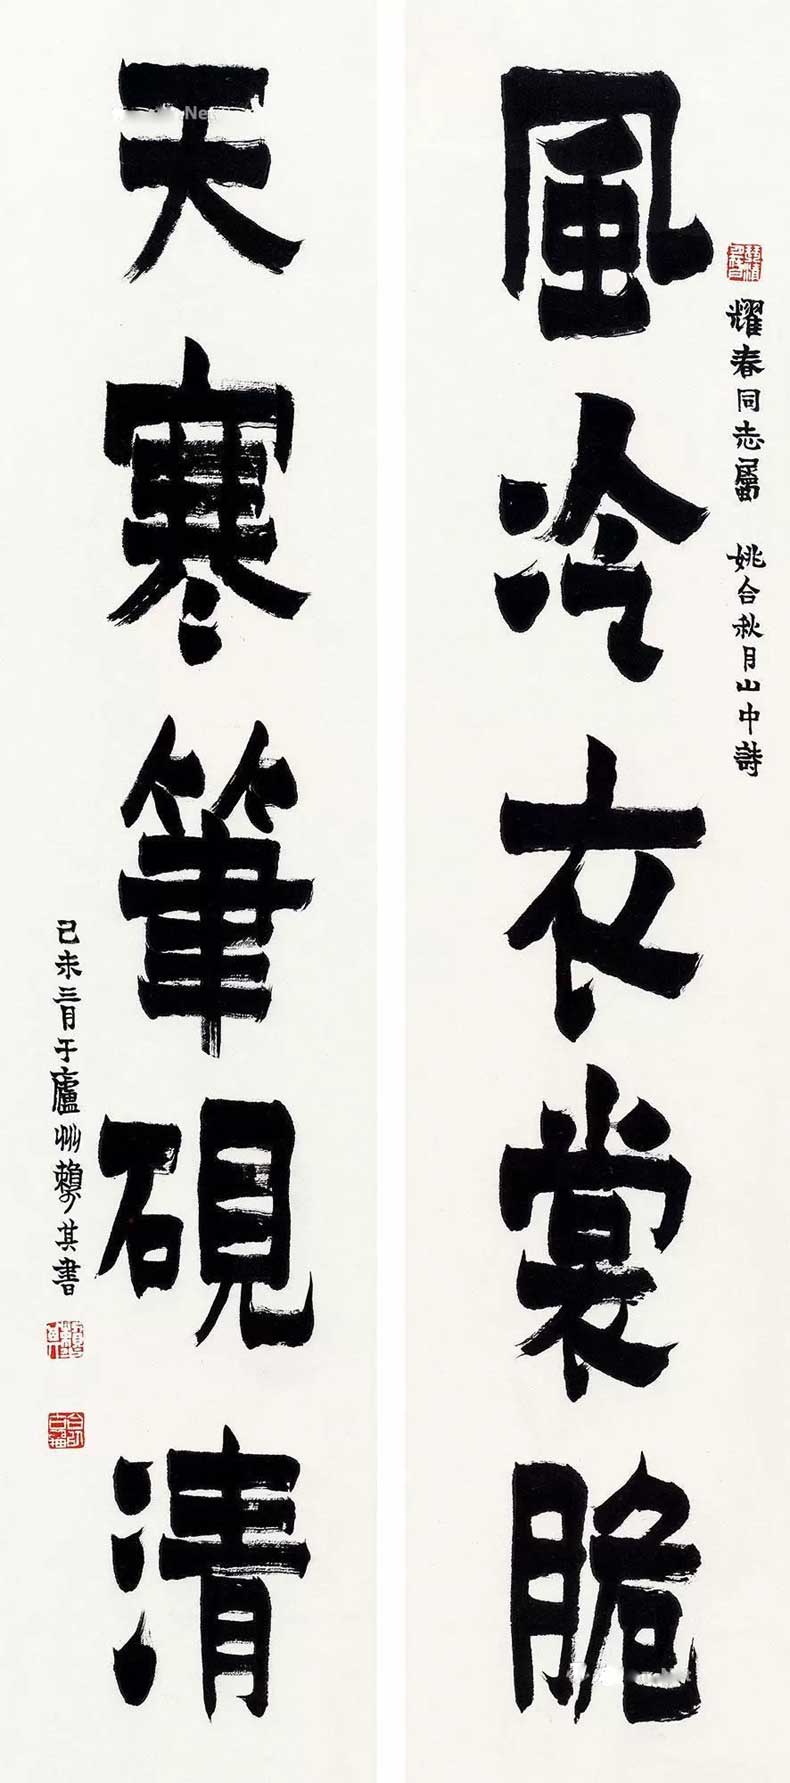 耀春同志屬 姚合秋月山中詩
風冷衣裳脆
天寒筆硯清
己未三月于廬州賴少其書